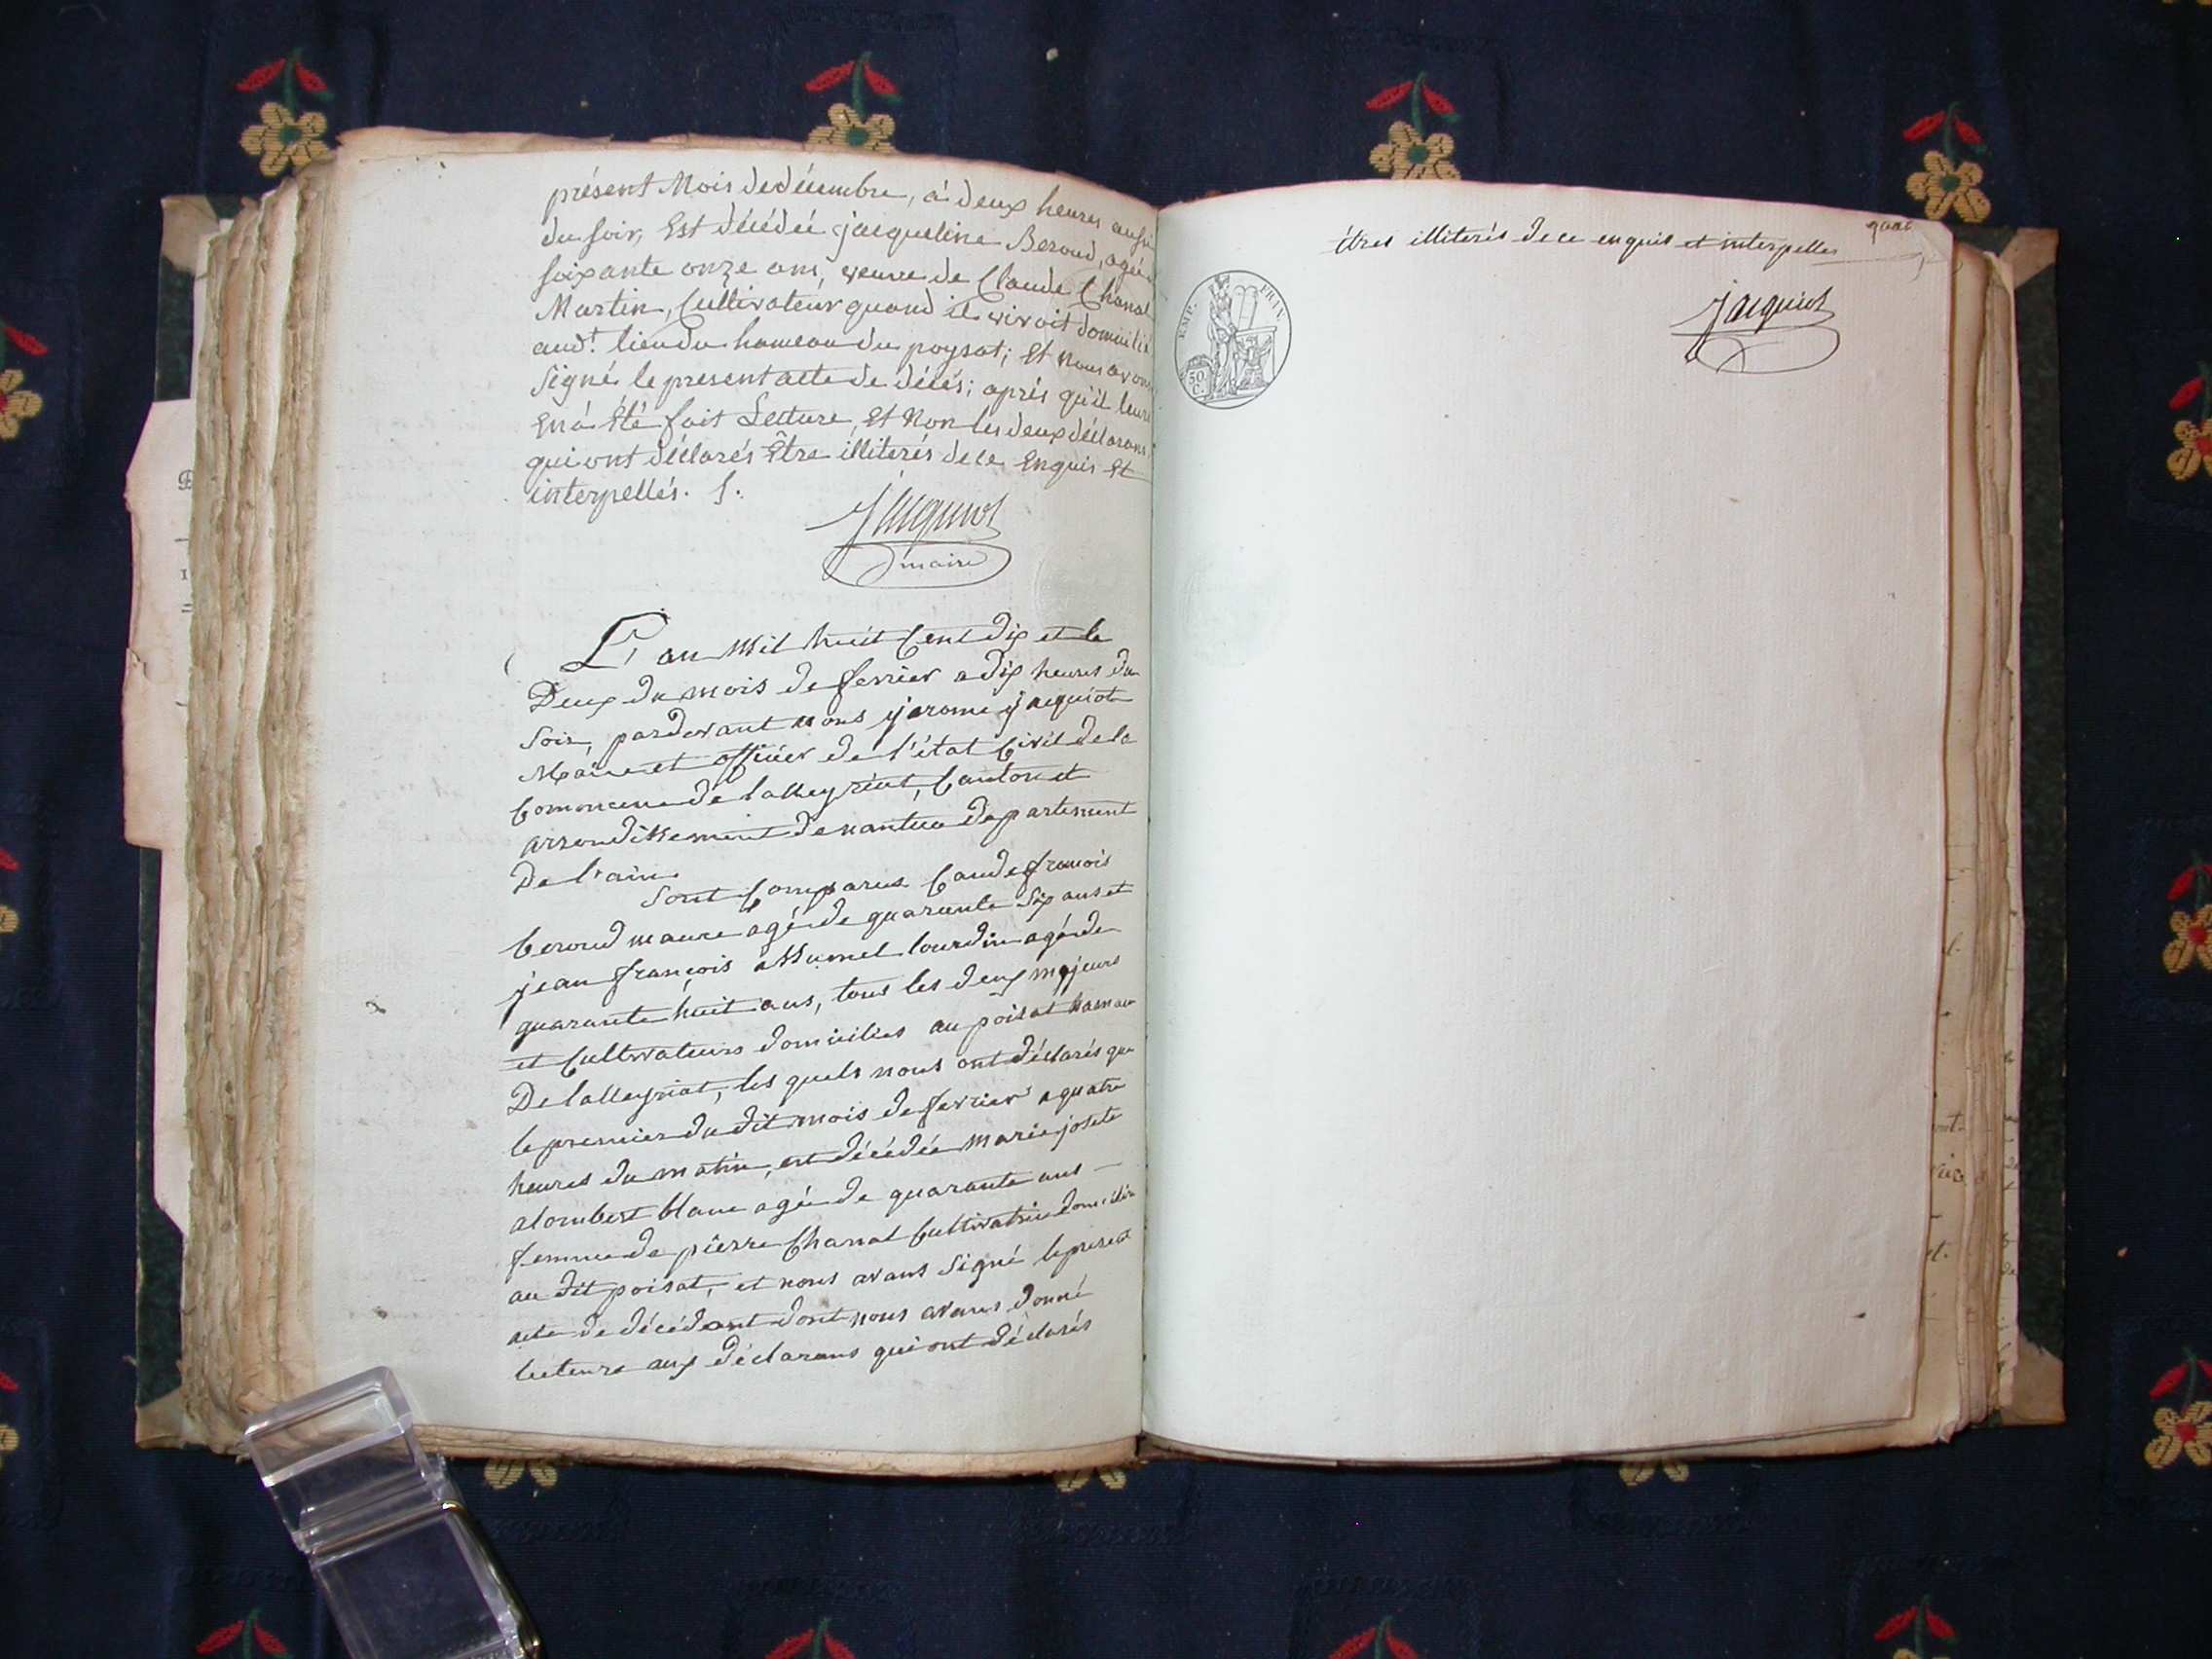 présent Mois de décembre, à deux heures aussi
du soir, Est décédée jacqueline Beroud, agée
soixante onze ans, veuve de Claude Chanal
Martin, Cultivateur quand il vivoit domicilié
aud.t lieu du hameau du poysat; Et nous avons
signé le present acte de décès; après qu'il leur
En á Eté fait Lecture, Et Non les deux déclarans
qui ont déclarés Être illiterés de ce Enquis Et
interpellés.
Jacquiot
maire
L'an Mil huit Cent dix et le
Deux du mois de fevrier a dix heures du
Soir, pardevant nous jerome jacquiot
Maire et officier de l'état Civil de la
Commune de lalleyriat, Canton et
arrondissement de nantua departement
De l'ain.
Sont Comparus Caude francois
beroud maure agé de quarante Six ans et
jean françois assumel lourdin agé de
quarante huit ans, tous les deux majeurs
et Cultivateurs domicilies au poisat hamau
De lalleyriat, les quels nous ont déclarés que
le premier du dit mois de fevrier a quatre
heures du matin, est décédée marie josete
alombert blanc agée de quarante ans
femme de pierre Chanal Cultivatrice domiciliée
au dit poisat, et nous avans Signé le present
acte de décédant dont nous avans donné
lecteure aux déclarans qui ont déclarés
êtres illiterés de ce enquis et interpelles
Jacquiot
EMP. FRAN.
50 C.